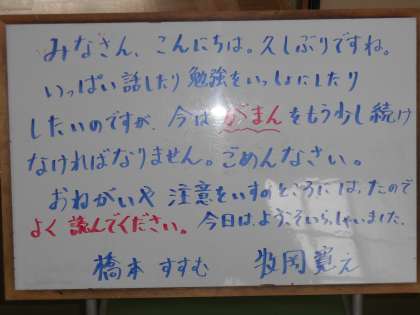 みなさん、こんにちは。久しぶりですね。
いっぱい話したり勉強をいっしょにしたり
したいのですが、今はがまんをもう少し続け
なければなりません。ごめんなさい。
おねがいや注意をいすのところにはったので
よく読んでください。今日は、ようこそいらっしゃいました。
橋本すすむ 牧岡寛え